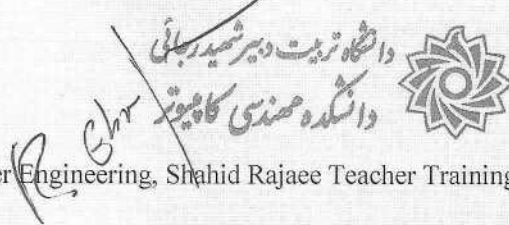 دانشگاه تربیت دبیر شهید رجائی
دانشکده مهندسی کامپیوتر
er Engineering, Shahid Rajaee Teacher Training